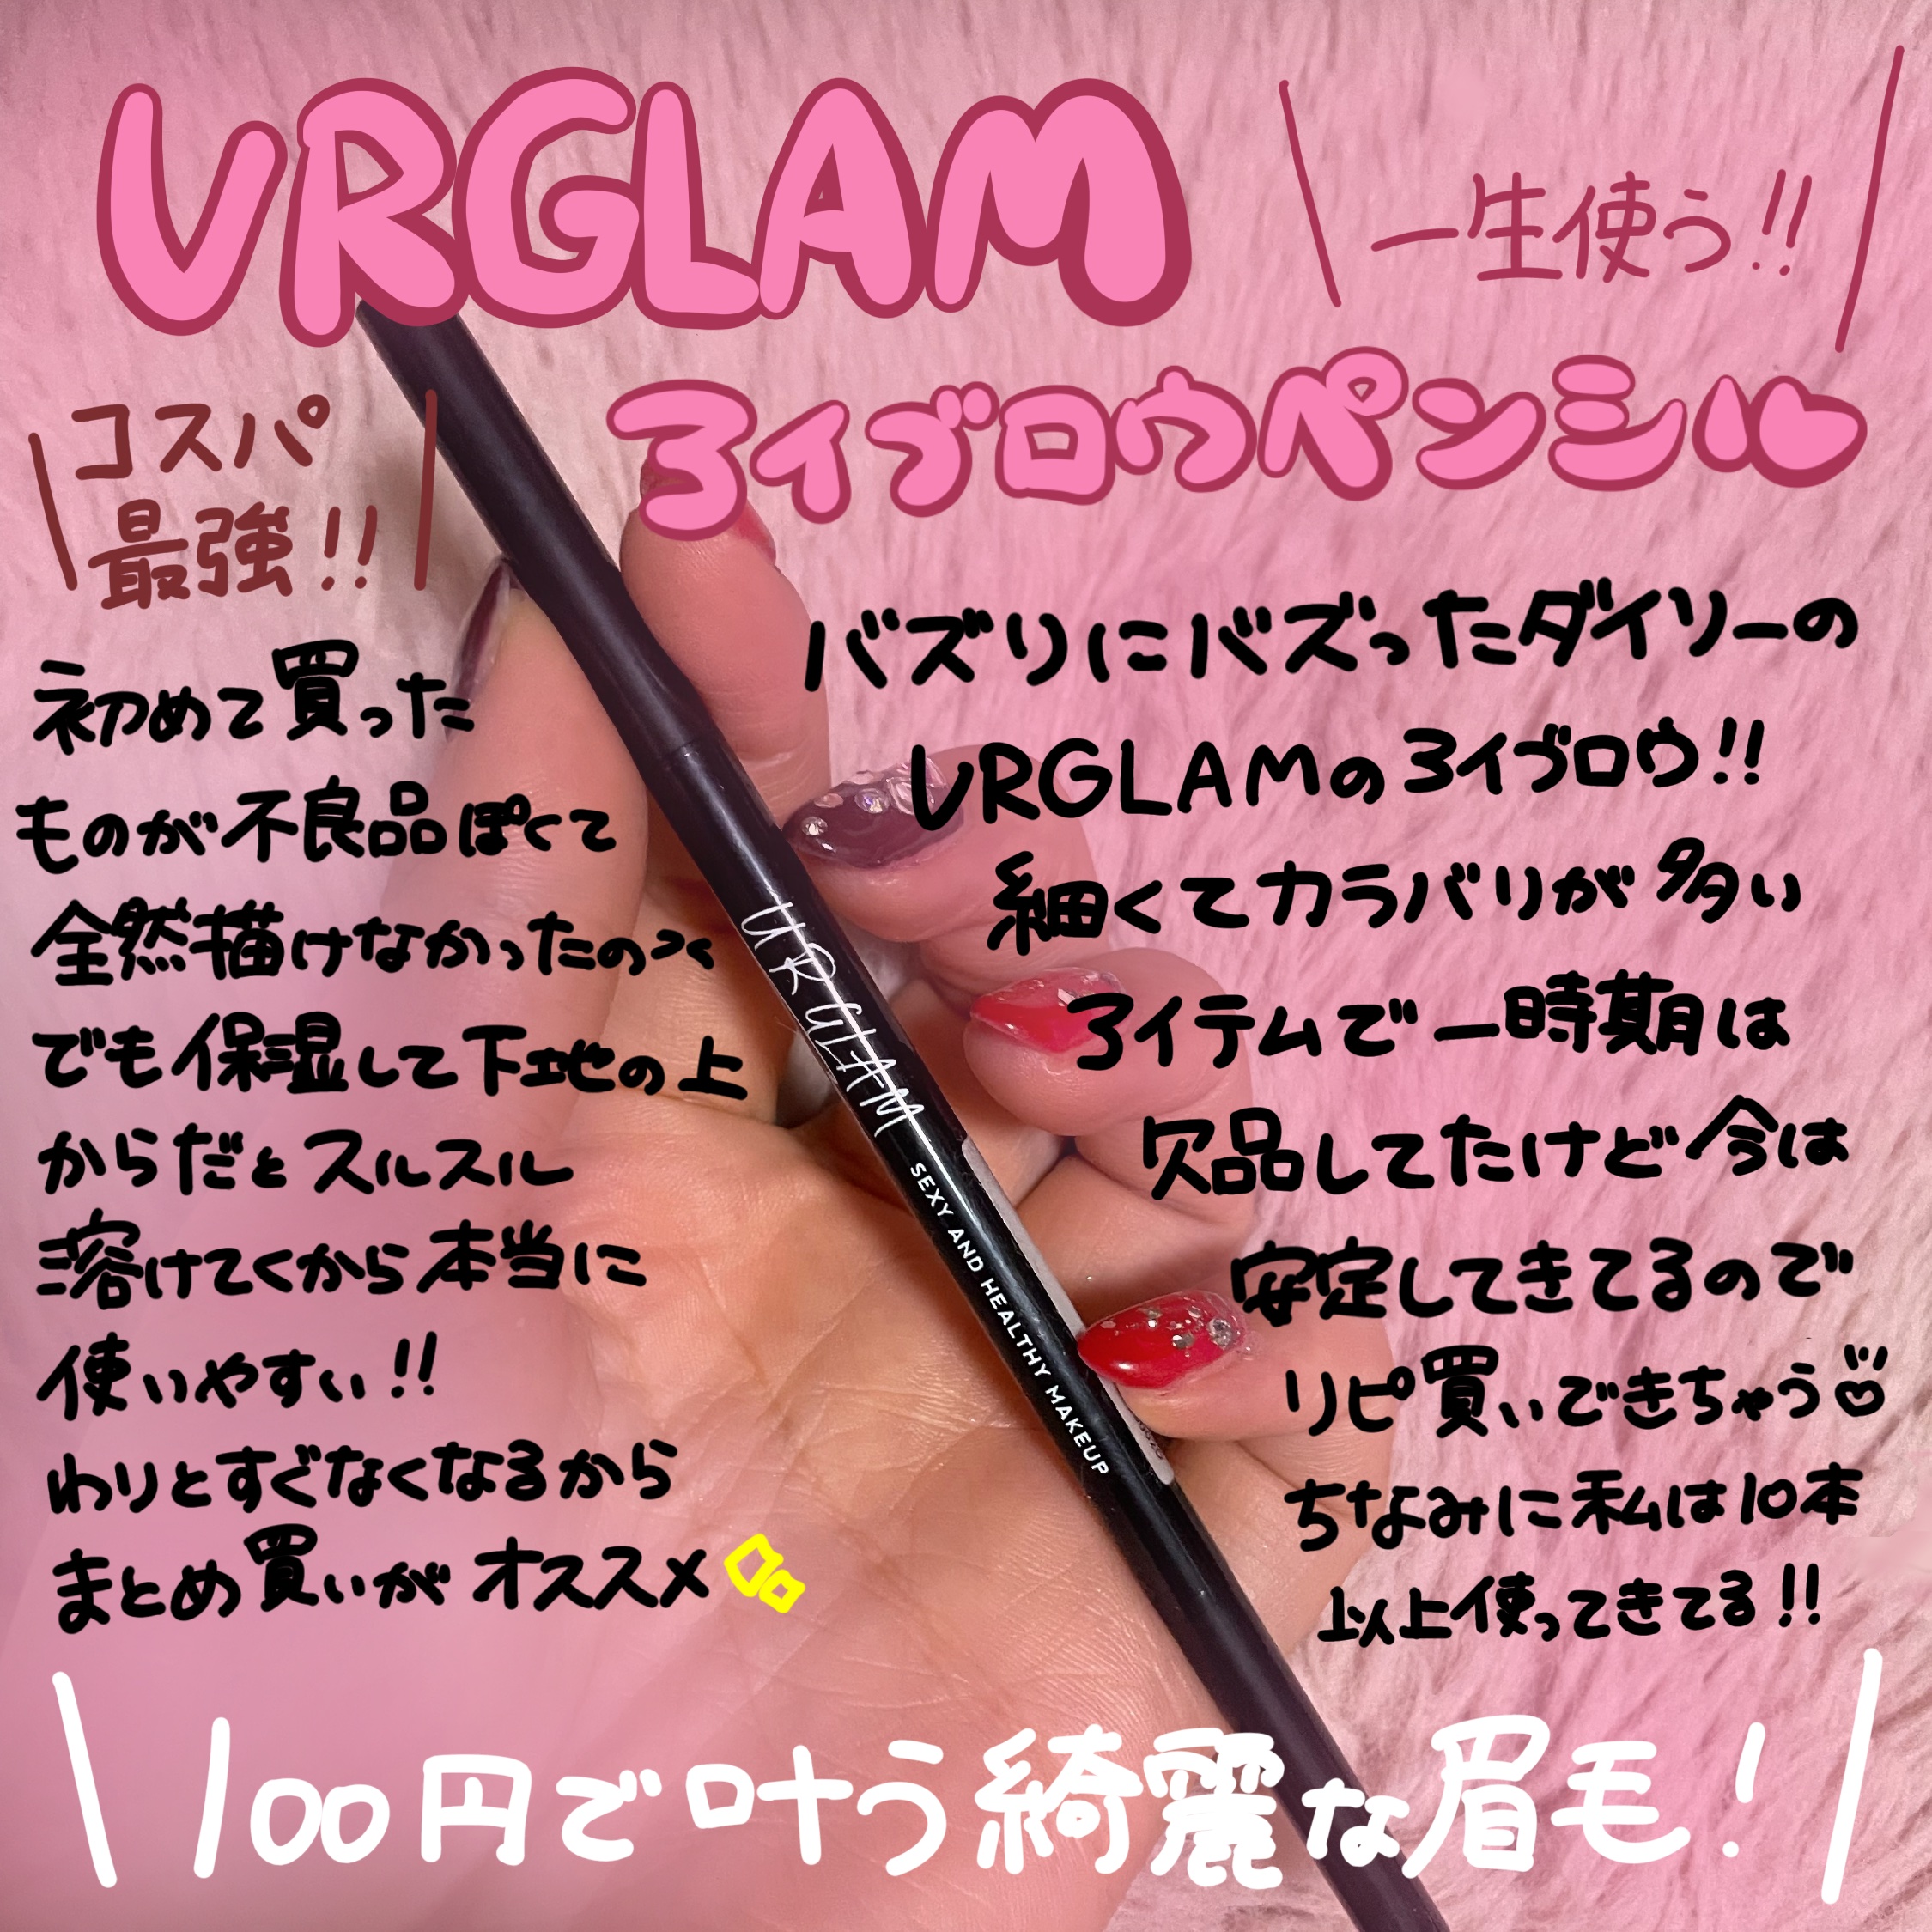 URGLAM
一生使う!!
アイブロウペンシル
コスパ
最強!!
バズりにバズったダイソーの
URGLAMのアイブロウ!!
細くてカラバリが多い
アイテムで一時期は
欠品してたけど今は
安定してきてるので
リピ買いできちゃう
ちなみに私は10本
以上使ってきてる!!
初めて買った
ものが不良品ぽくて
全然描けなかったの
でも保湿して下地の上
からだとスルスル
溶けてくから本当に
使いやすい!!
わりとすぐなくなるから
まとめ買いがオススメ
URGLAM
SEXY AND HEALTHY MAKEUP
100円で叶う綺麗な眉毛!